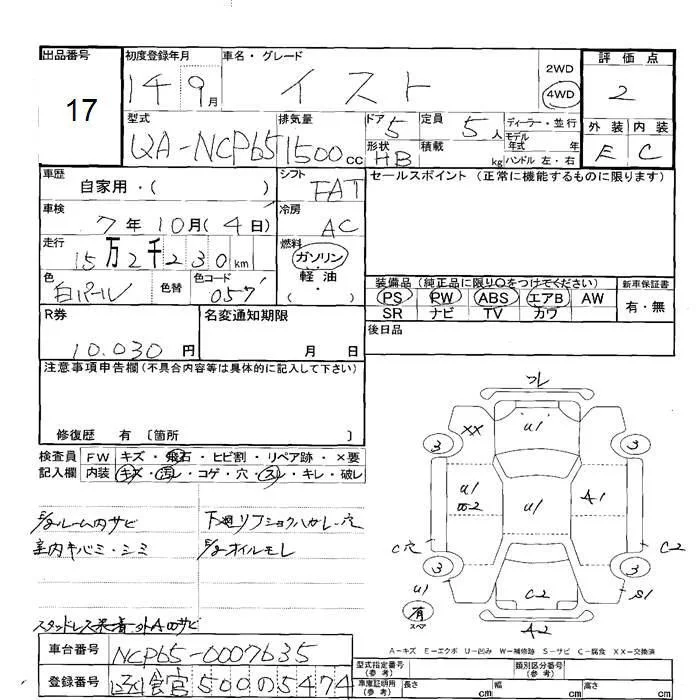 出品番号 初度登録年月 車名・グレード 評価点
17 14 9月 イスト 2WD 4WD 2
型式 排気量 ドア 5 定員 5人 ディーラー・並行 外装 内装
UA-NCP65 1500cc 形状 HB 積載 kg モデル年式 年 ハンドル 左・右 E C
車歴 自家用・( ) シフト FAT セールスポイント (正常に機能するものに限ります)
車検 7年10月(4日) 冷房 AC
走行 15万2千230km 燃料 ガソリン
軽油
( ・ )
色 白パール 色替 色コード 057 装備品 (純正品に限り○をつけてください) 新車保証書
PS PW ABS エアB AW 有・無
SR ナビ TV カワ
R券 名変通知期限 後日品
10.030円 月 日
注意事項申告欄 (不具合内容等は具体的に記入して下さい)
修復歴 有 〔箇所 〕
検査員 FW キズ・飛石・ヒビ割・リペア跡・×要
記入欄 内装 キズ・汚レ・コゲ・穴・スレ・キレ・破レ
ルーム内サビ 下廻リ
室内キバミ・シミ オイルモレ
スタッドレス
フレ
XX U1
3 3
U1 U1 A1
C穴 C2
3 3
U1 C2 S1
有 スペア
A2
A-キズ E-エクボ U-凹み W-補修跡 S-サビ C-腐食 XX-交換済
車台番号 NCP65-0007635
登録番号 500の5474
型式指定番号 (参考) 類別区分番号 (参考)
車庫証明用 (参考) 長さ cm 幅 cm 高さ cm